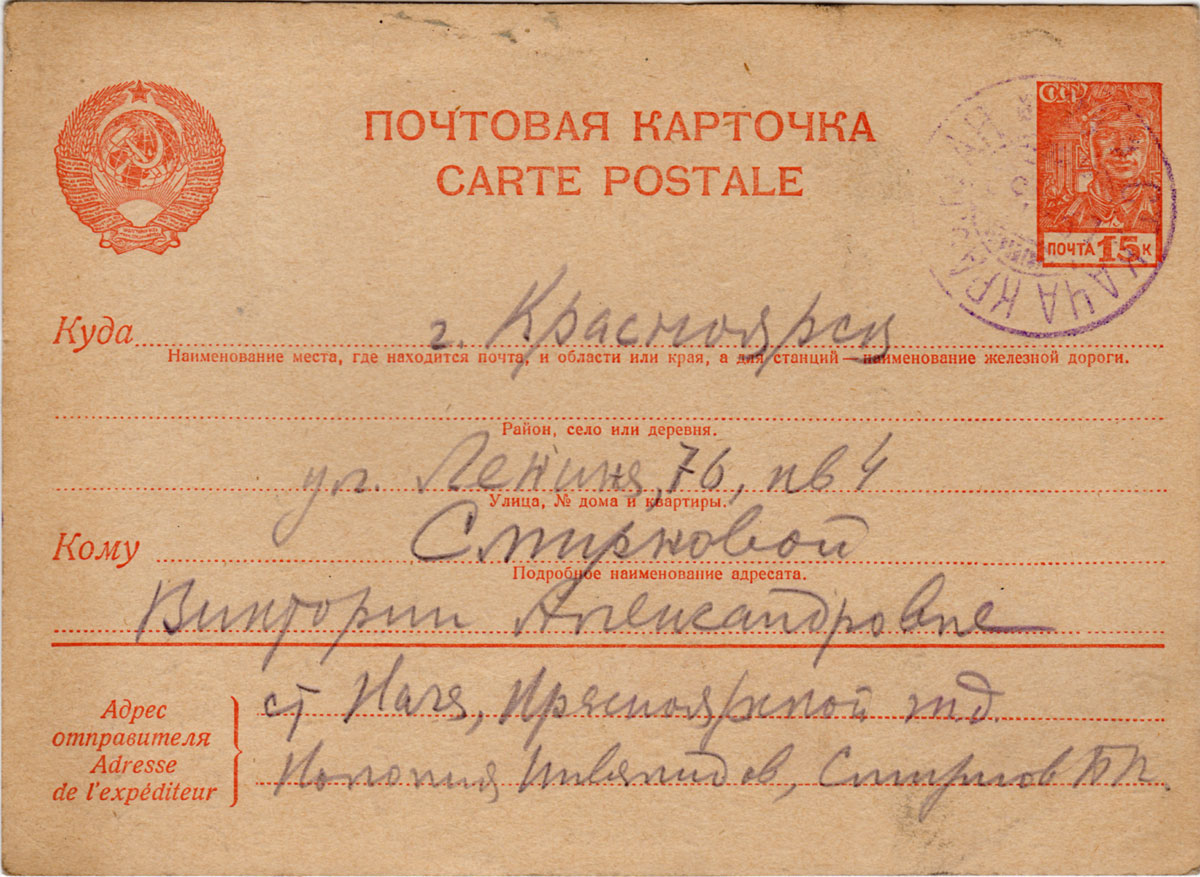 ПОЧТОВАЯ КАРТОЧКА
CARTE POSTALE
СССР
ПОЧТА 15 К
КАЧА КРАСН
Куда г. Красноярск
Наименование места, где находится почта, и области или края, а для станций—наименование железной дороги.
Район, село или деревня.
ул. Ленина, 76, кв 4
Улица, № дома и квартиры.
Кому Смирновой
Подробное наименование адресата.
Виктории Александровне
Адрес отправителя
Adresse de l'expéditeur
ст Кача, Красноярской жд.
Колония Инвалидов, Смирнов